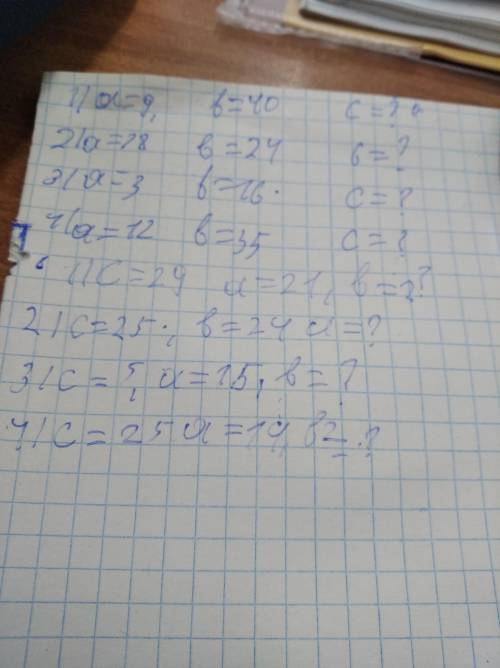 1) a=9, b=40 c=?
2) a=18 b=24 c=?
3) a=3 b=16. c=?
4) a=12 b=35 c=?
1) c=29 a=21, b=?
2) c=25, b=24 a=?
3) c= a=15, b=?
4) c=25 a=19, b=?